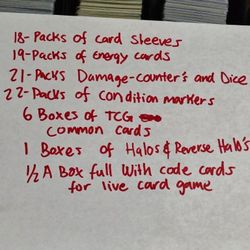 18-Packs of Card Sleeves
19-Packs of Energy cards
21-Packs Damage-counter's and Dice
22-Packs of condition markers
6 Boxes of TCG
Common Cards
1 Boxes of Halos & Reverse Halo's
1/2 A Box full With code cards
for live card game